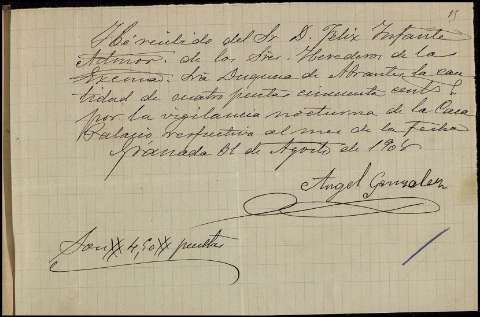 15
He recibido del Sr. D. Felix Infante
Admor. de los Sres. Herederos de la
Excma. Sra Duquesa de Abrantes la can
tidad de cuatro pesetas cincuenta cents
por la vigilancia nocturna de la Casa
Palacio respectiva al mes de la fecha
Granada 31 de Agosto de 190
Angel Gonzalez
Son 4,50 pesetas